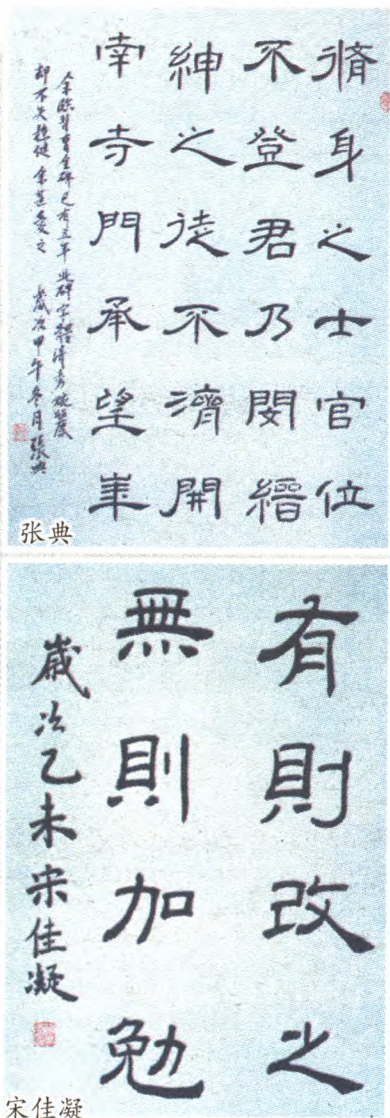 脩身之士官位
不登君乃閔縉
紳之徒不濟開
南寺門承望華
余臨習曹全碑已有三年此碑字體清秀婉麗
却不失遒健余甚愛之 歲次甲午冬月張典
张典
有則改之
無則加勉
歲次乙未宋佳凝
宋佳凝